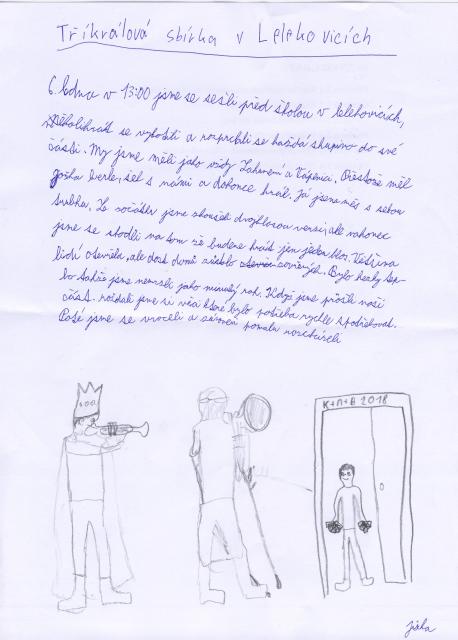 Tříkrálová sbírka v Lelekovicích
6. ledna v 13:00 jsme se sešli před školou v lelekovicích,
několikrát se vyfotili a rozprchli se každá skupina do své
části. My jsme měli jako vždy Zahumení a Vápenici. Přestože měl
Jožka berle, šel s námi a dokonce hrál. Já jsem měl s sebou
trubku. Ze začátku jsme zkoušeli dvojhlasou verzi, ale nakonec
jsme se shodli na tom že budeme hrát jen jeden hlas. Většina
lidí otevřela, ale dost domů zůstalo zavřených. Bylo hezky tep-
lo takže jsme nemrzli jako minulý rok. Když jsme prošli naší
část. rozdali jsme si věci které bylo potřeba rychle spotřebovat.
Poté jsme se vrátili a zároveň pomalu rozcházeli
K+M+B 2018
Jirka